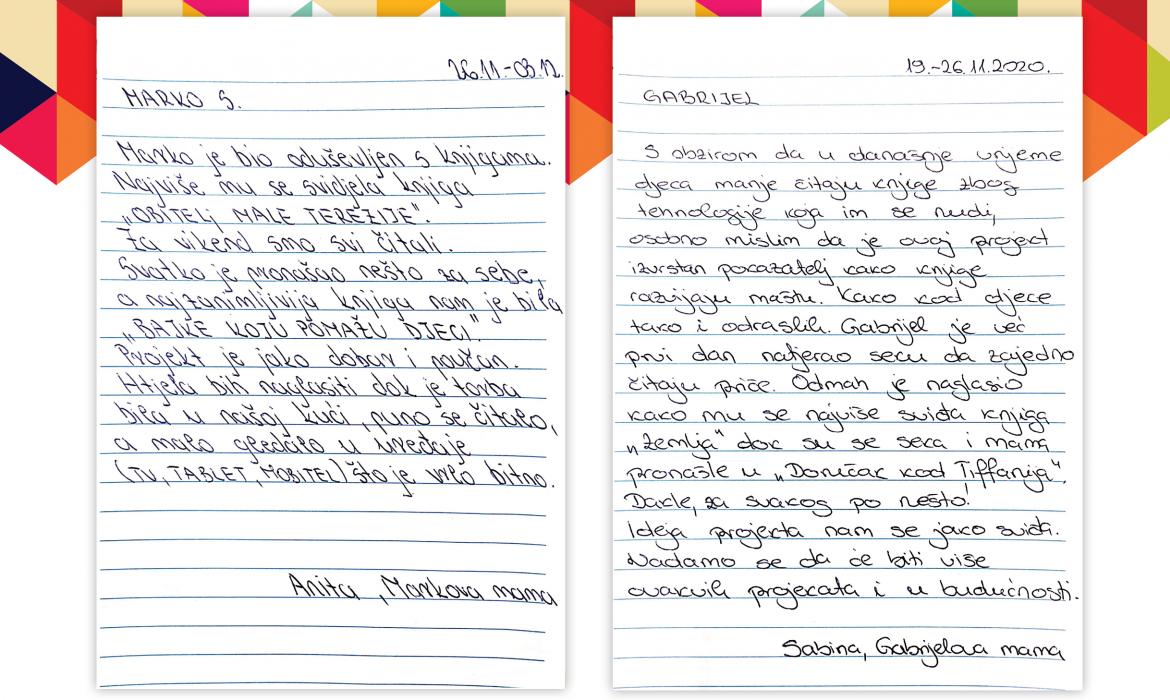 26.11.-03.12.
MARKO S.
Marko je bio oduševljen s knjigama.
Najviše mu se svidjela knjiga
„OBITELJ MALE TEREZIJE".
Za vikend smo svi čitali.
Svatko je pronašao nešto za sebe,
a najzanimljivija knjiga nam je bila
„BAJKE KOJU POMAŽU DJECI".
Projekt je jako dobar i poučan.
Htjela bih naglasiti dok je torba
bila u našoj kući, puno se čitalo,
a malo gledalo u uređaje
(TV, TABLET, MOBITEL) što je vrlo bitno.
Anita, Markova mama
19.-26.11.2020.
GABRIJEL
S obzirom da u današnje vrijeme
djeca manje čitaju knjige zbog
tehnologije koja im se nudi,
osobno mislim da je ovaj project
izvrstan pokazatelj kako knjige
razvijaju maštu. Kako kod djece
tako i odraslih. Gabrijel je već
prvi dan natjerao seku da zajedno
čitaju priče. Odmah je naglasio
kako mu se najviše sviđa knjiga
„Zemlja" dok su se seka i mama
pronašle u „Doručak kod Tiffanija".
Dakle, za svakog po nešto!
Ideja projekta nam se jako sviđa.
Nadamo se da će biti više
ovakvih projekata i u budućnosti.
Sabina, Gabrijelova mama